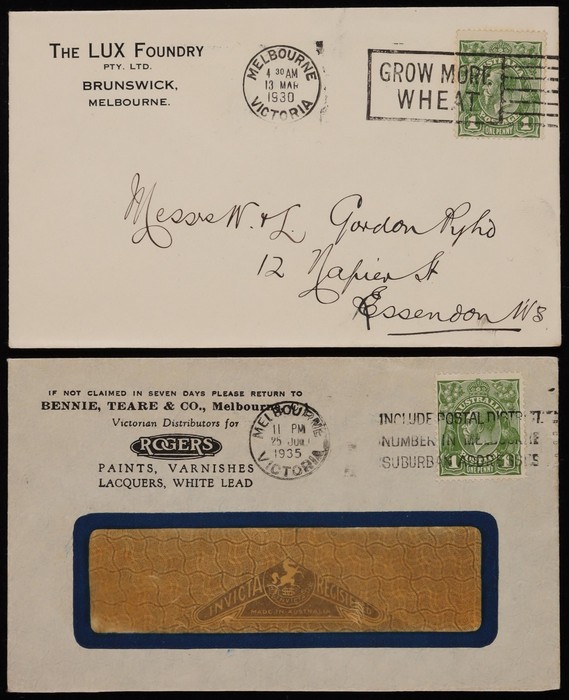 THE LUX FOUNDRY
PTY. LTD.
BRUNSWICK,
MELBOURNE.
MELBOURNE
4 30 AM
13 MAR
1930
VICTORIA
GROW MORE
WHEAT
AUSTRALIA
POSTAGE
1 1
ONE PENNY
Messrs W. & L. Gordon
12 Napier St
Essendon W5
IF NOT CLAIMED IN SEVEN DAYS PLEASE RETURN TO
BENNIE, TEARE & CO., Melbourne
Victorian Distributors for
ROGERS
PAINTS, VARNISHES
LACQUERS, WHITE LEAD
MELBOURNE
11 PM
25 JUN
1935
VICTORIA
INCLUDE POSTAL DISTRICT
NUMBER IN MELBOURNE
SUBURB ADDRESSES
AUSTRALIA
1 1
ONE PENNY
INVICTA REGISTERED
MADE IN AUSTRALIA